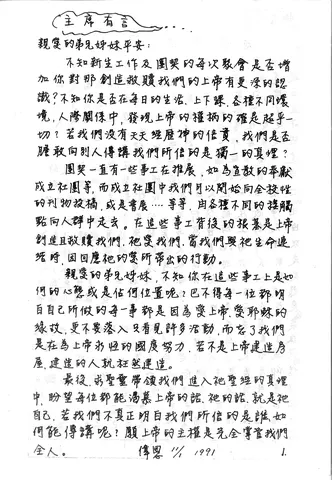 主席有言……
親愛的弟兄姊妹平安:
不知新生工作及團契的每次聚會是否增
加你對那創造救贖我們的上帝有更深的認
識?不知你是否在每日的生活、上下課、各種不同環
境、人際關係中,發現上帝的權柄的確是超乎一
切?若我們沒有天天經歷神的信實,我們是否
膽敢向別人傳講我們所信的是獨一的真理?
團契一直有一些事工在推展,如為宣教的奉獻
成立社團等,而成立社團中我們可以開始向全校性
的刊物投稿,或是書展……等等,由各種不同的接觸
點向人群中走去。在這些事工背後的根基是上帝
創造且救贖我們,祂愛我們,當我們與祂生命連
結時,因回應祂的愛所帶出的行動。
親愛的弟兄姊妹,不知你在這些事工上是如
何的心態或是佔何位置呢?巴不得每一位都明
白自己所做的每一事都是因為愛上帝,愛耶穌的
緣故,更不要落入只看見許多活動,而忘了我們
是在為上帝永恆的國度努力,若不是上帝建造房
屋,建造的人就枉然建造。
最後,求聖靈帶領我們進入祂聖經的真理
中,盼望每位都能渴慕上帝的話,祂的話,就是祂
自己,若我們不真正明白我們所信的是誰,如
何能傳講呢?願上帝的主權是完全掌管我們
全人。 偉恩 11/1 1991
1.